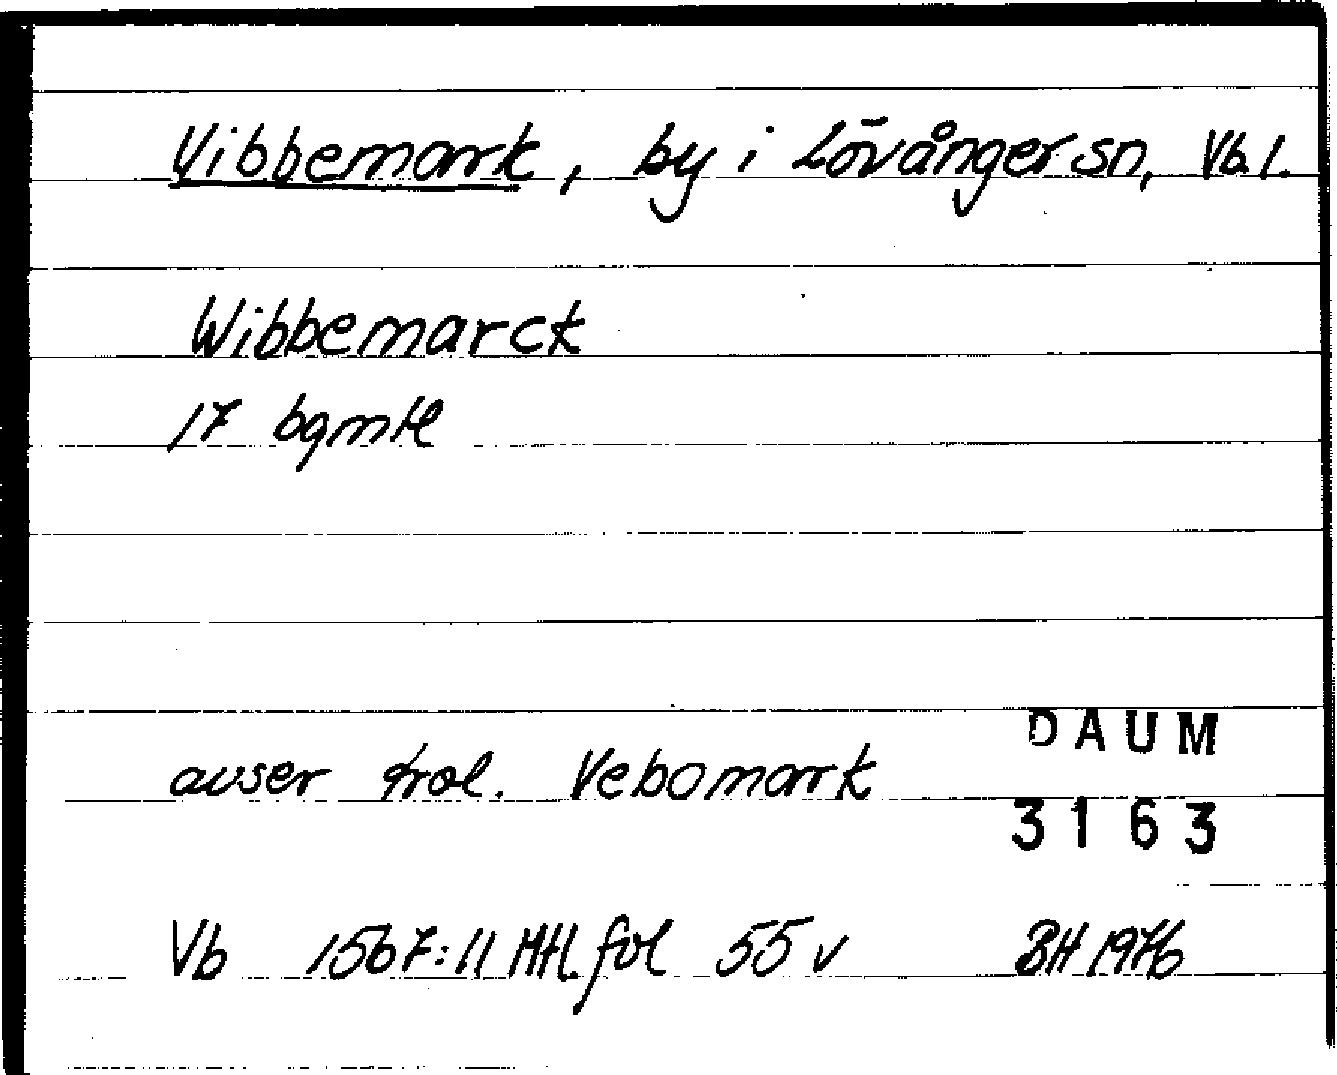 Vibbemark, by i Lövånger sn, Vb. l.
Wibbemarck
17 bgmtl
avser trol. Vebomark
DAUM
3163
Vb 1567:11 Mtl. fol 55 v BH 1976